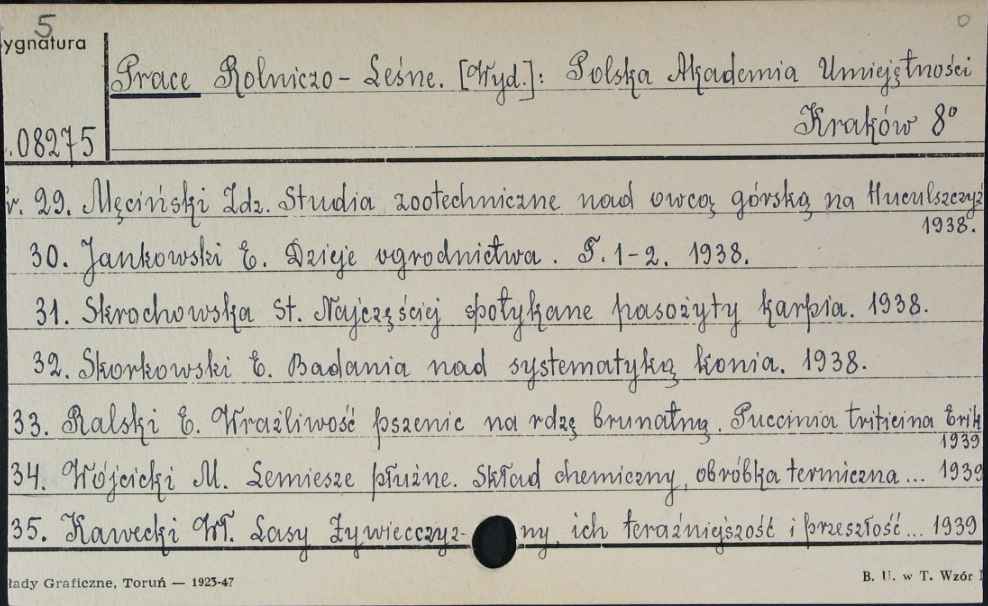 5
ygnatura
Prace Rolniczo-Leśne. [Wyd.]: Polska Akademia Umiejętności
Kraków 8°
.08275
r. 29. Męciński Zdz. Studia zootechniczne nad owcą górską na Huculszczyź
1938.
30. Jankowski E. Dzieje ogrodnictwa. T. 1-2. 1938.
31. Skrochowska St. Najczęściej spotykane pasożyty karpia. 1938.
32. Skorkowski E. Badania nad systematyką konia. 1938.
33. Ralski E. Wrażliwość pszenic na rdzę brunatną. Puccinia triticina Erik
1939
34. Wójcicki M. Lemiesze płużne. Skład chemiczny, obróbka termiczna... 1939
35. Kawecki Wł. Lasy Żywiecczyz- ny, ich teraźniejszość i przeszłość... 1939
łady Graficzne, Toruń — 1923-47
B. U. w T. Wzór